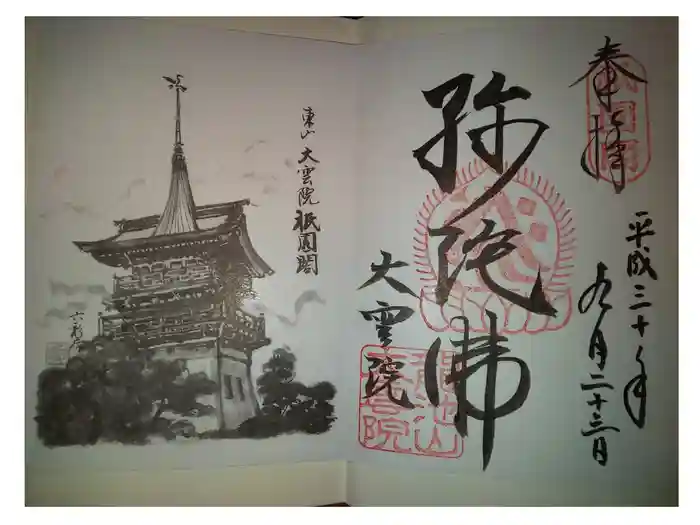 奉拝
平成三十年
九月二十三日
弥陀佛
大雲院
龍池山
大雲院
東山 大雲院 祇園閣